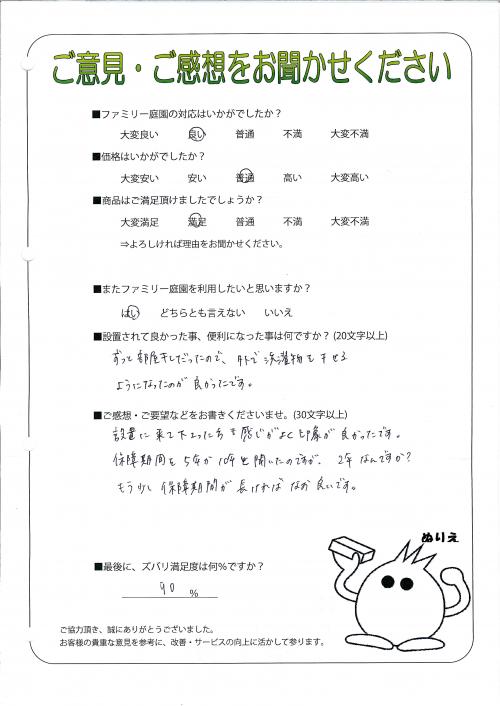 ご意見・ご感想をお聞かせください
■ファミリー庭園の対応はいかがでしたか？
大変良い 良い 普通 不満 大変不満
■価格はいかがでしたか？
大変安い 安い 普通 高い 大変高い
■商品はご満足頂けましたでしょうか？
大変満足 満足 普通 不満 大変不満
⇒よろしければ理由をお聞かせください。
■またファミリー庭園を利用したいと思いますか？
はい どちらとも言えない いいえ
■設置されて良かった事、便利になった事は何ですか？(20文字以上)
ずっと部屋干しだったので、外で洗濯物を干せる
ようになったのが良かったです。
■ご感想・ご要望などをお書きくださいませ。(30文字以上)
設置に来て下さった方も感じがよく印象が良かったです。
保障期間を5年か10年と聞いたのですが、2年なんですか？
もう少し保障期間が長ければなお良いです。
ぬりえ
■最後に、ズバリ満足度は何％ですか？
90 ％
ご協力頂き、誠にありがとうございました。
お客様の貴重な意見を参考に、改善・サービスの向上に活かして参ります。